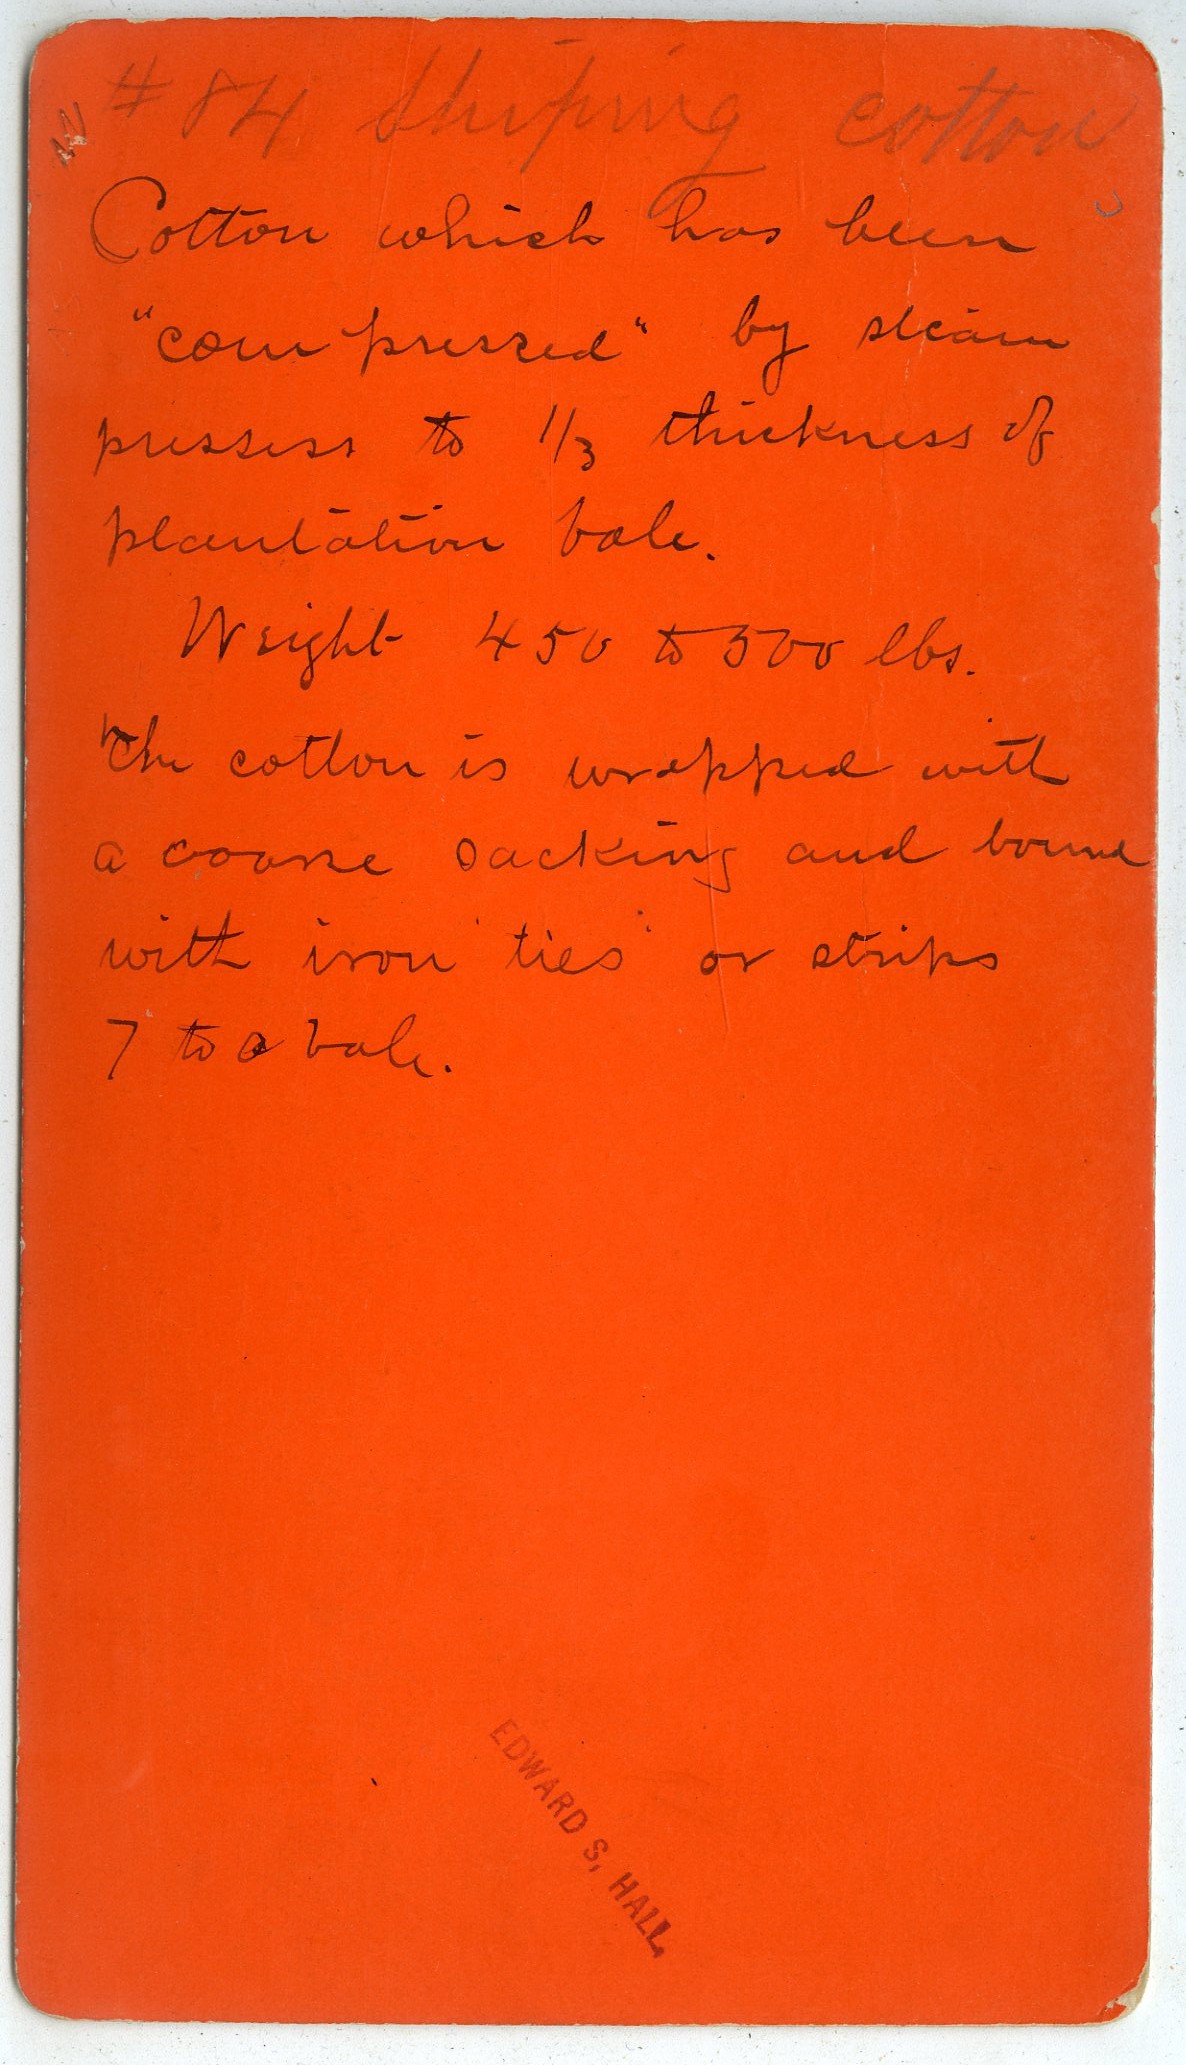 #84 Shiping cotton
Cotton which has been
"compressed" by steam
presses to 1/3 thickness of
plantation bale.
Weight 450 to 500 lbs.
The cotton is wrapped with
a coarse sacking and bound
with iron "ties" or strips
7 to a bale.
EDWARD S. HALL